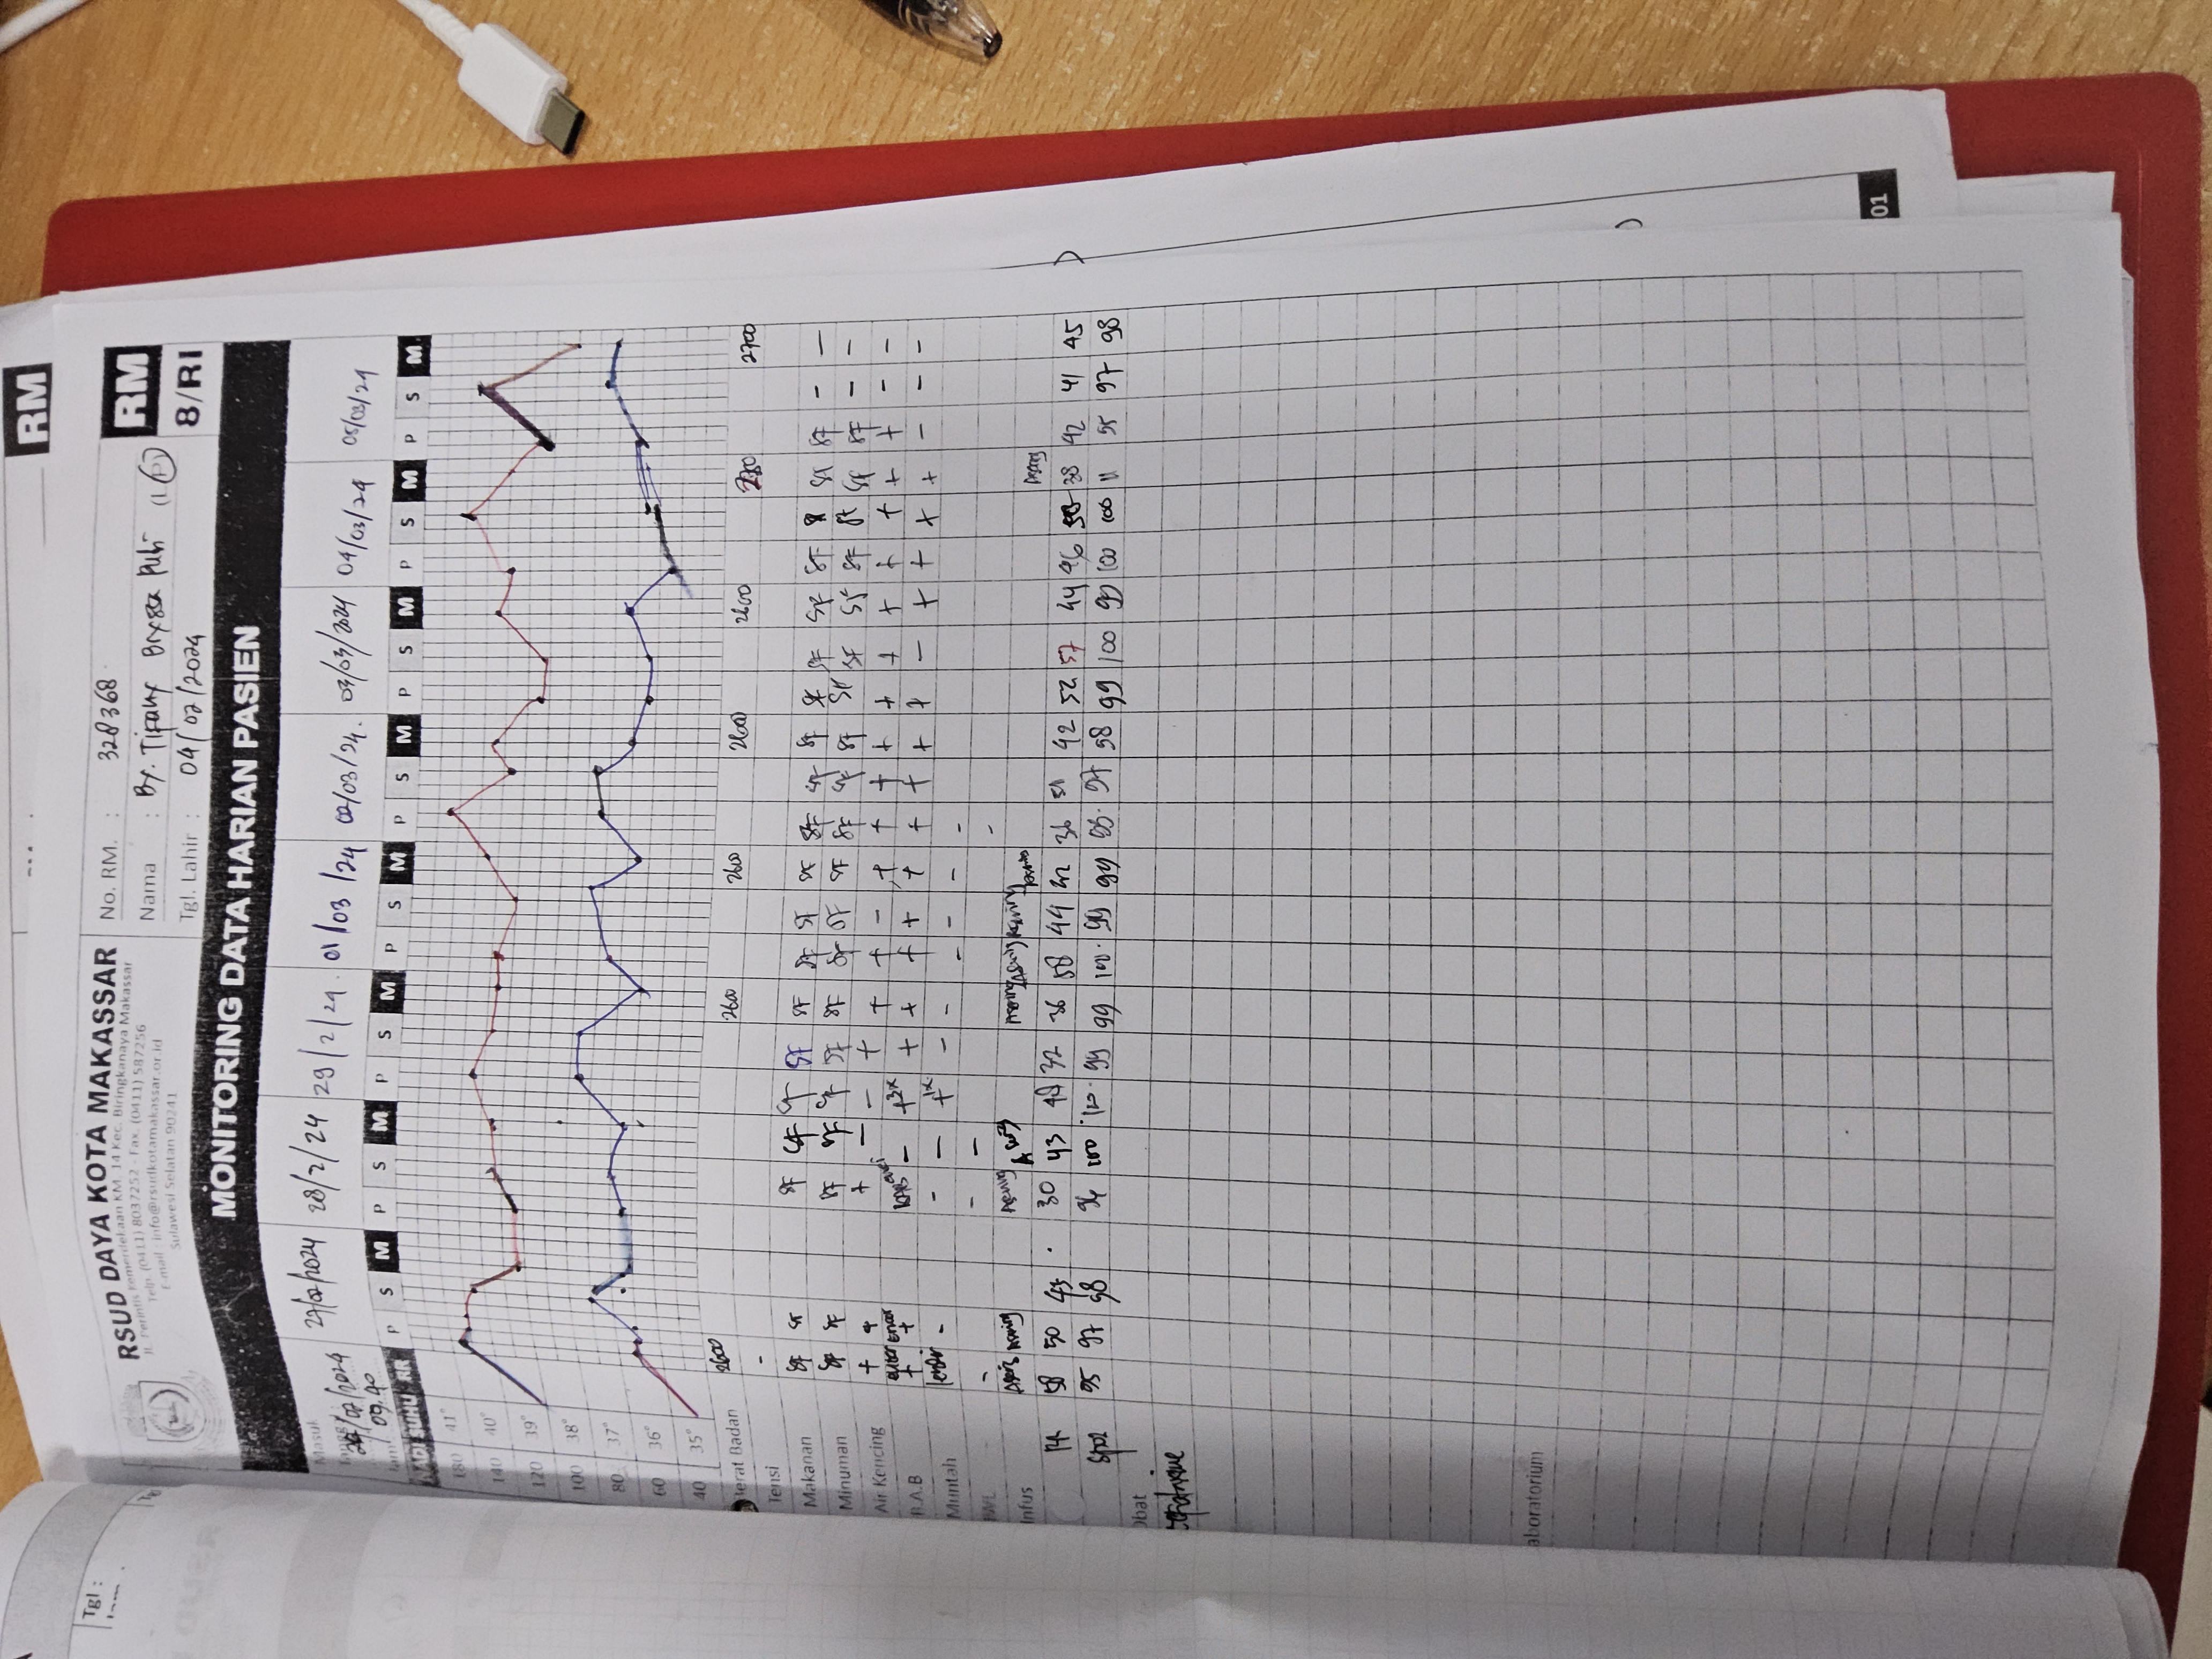 Tgl :
RM
RSUD DAYA KOTA MAKASSAR
Jl. Perintis Kemerdekaan KM. 14 Kec. Biringkanaya Makassar
Telp. (0411) 8037252 - Fax. (0411) 587256
E-mail : info@rsudkotamakassar.or.id
Sulawesi Selatan 90241
No. RM. : 328368
Nama : By. Tifany (L P)
Tgl. Lahir : 04/02/2024
RM
8/RI
MONITORING DATA HARIAN PASIEN
Masuk
/02/2024
09.40
27/02/2024 28/2/24 29/2/24 01/03/24 02/03/24. 03/03/2024 04/03/24 05/03/24
NADI SUHU RR P S M P S M P S M P S M P S M P S M P S M P S M
180 41°
140 40°
120 39°
100 38°
80 37°
60 36°
40 35°
Berat Badan 2600 2600 2600 2600 2600 2700
Tensi -
Makanan SF SF SF SF SF SF SF SF SF SF SF SF SF SF SF SF SF SF - -
Minuman SF SF SF SF SF SF SF SF SF SF SF SF SF SF SF SF SF SF SF SF - -
Air Kencing + + + - - + + + - + + + + + + + + + + + - -
B.A.B + + - +3x + + + + + + + + + - + + + + - - -
Muntah lendir - - - +1x - - - - - -
IWL - - - -
Infus Asering Asering Asering Asering Asering Asering
58 50 45 30 43 48 32 36 58 44 42 36 51 42 52 57 44 46 38 42 41 45
SpO2 95 97 98 96 100 100 99 99 100 99 99 95 97 98 99 100 99 100 100 11 95 97 98
Obat
Cefotaxime
Laboratorium
01